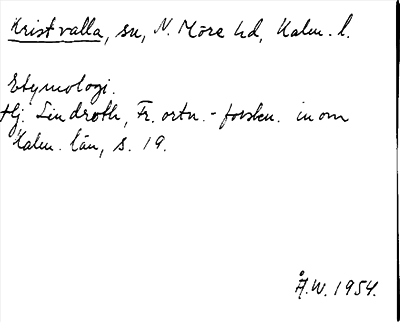 Kristvalla, sn, N. Möre hd, Kalm. l.
Etymologi.
Hj. Lindroth, Fr. ortn.-forskn. inom
Kalm. län, s. 19.
Å.W. 1954.